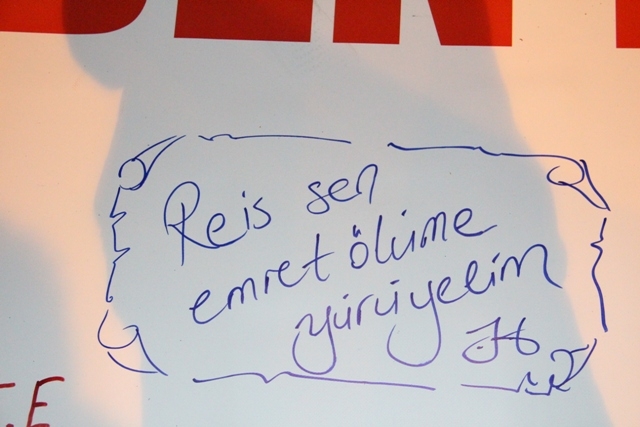 Reis sen
emret ölüme
yürüyelim